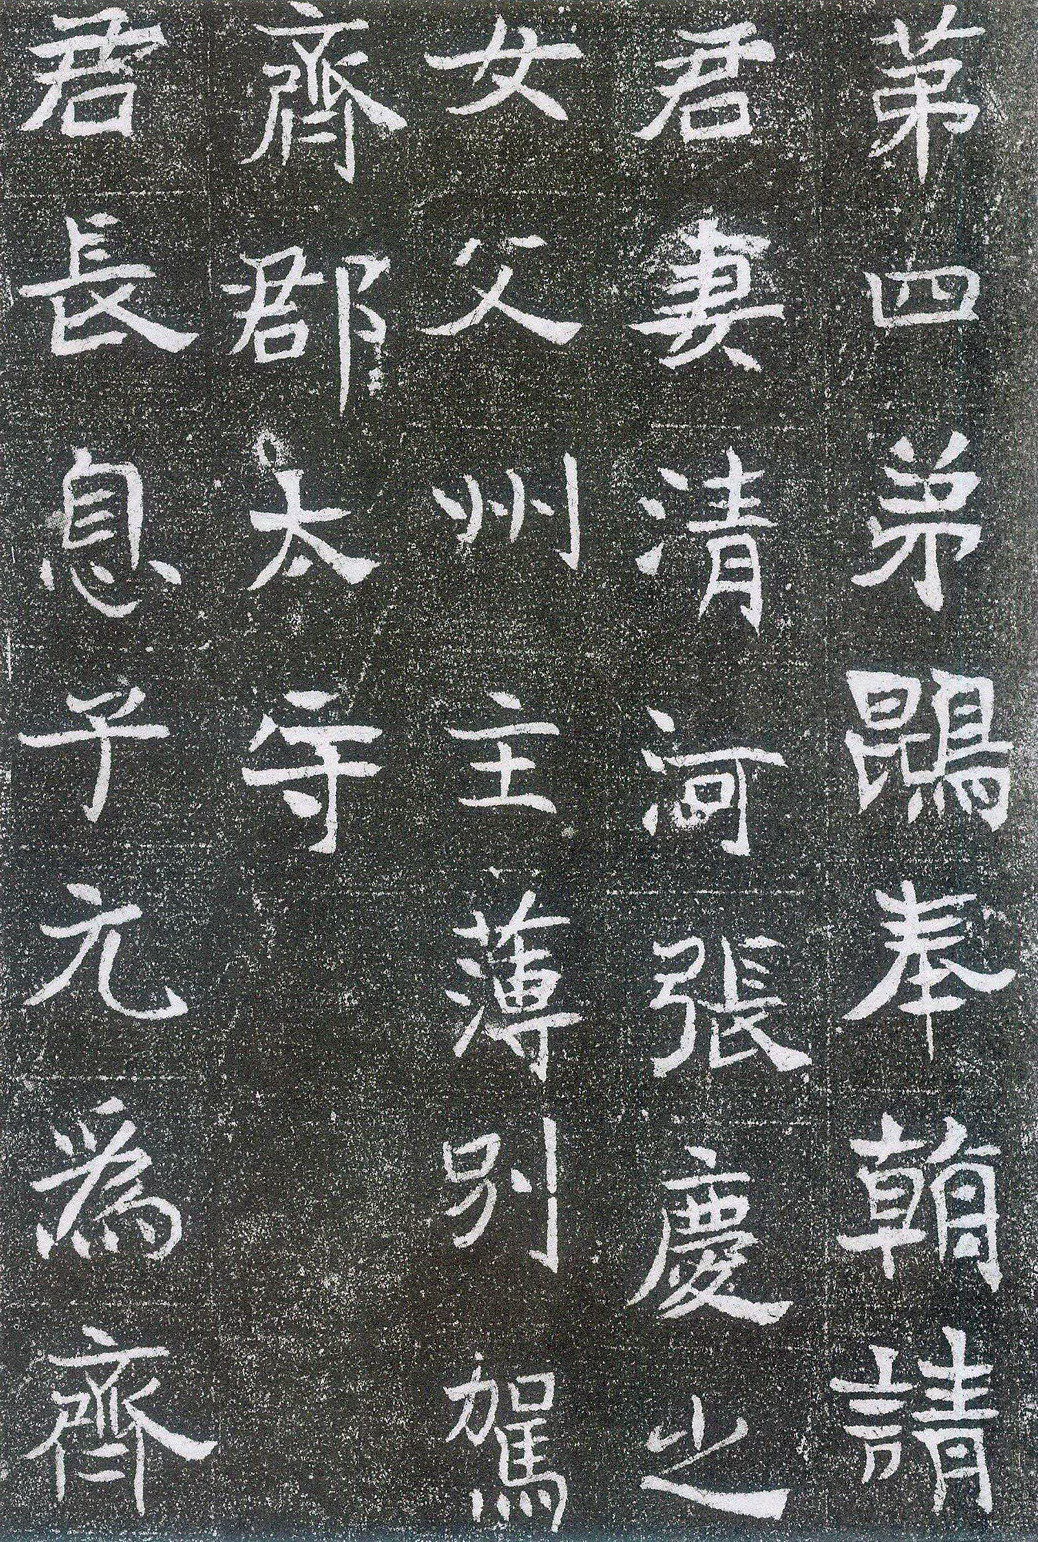 第四弟鷃奉朝請
君妻清河張慶之
女父州主薄別駕
齊郡太守
君長息子元為齊